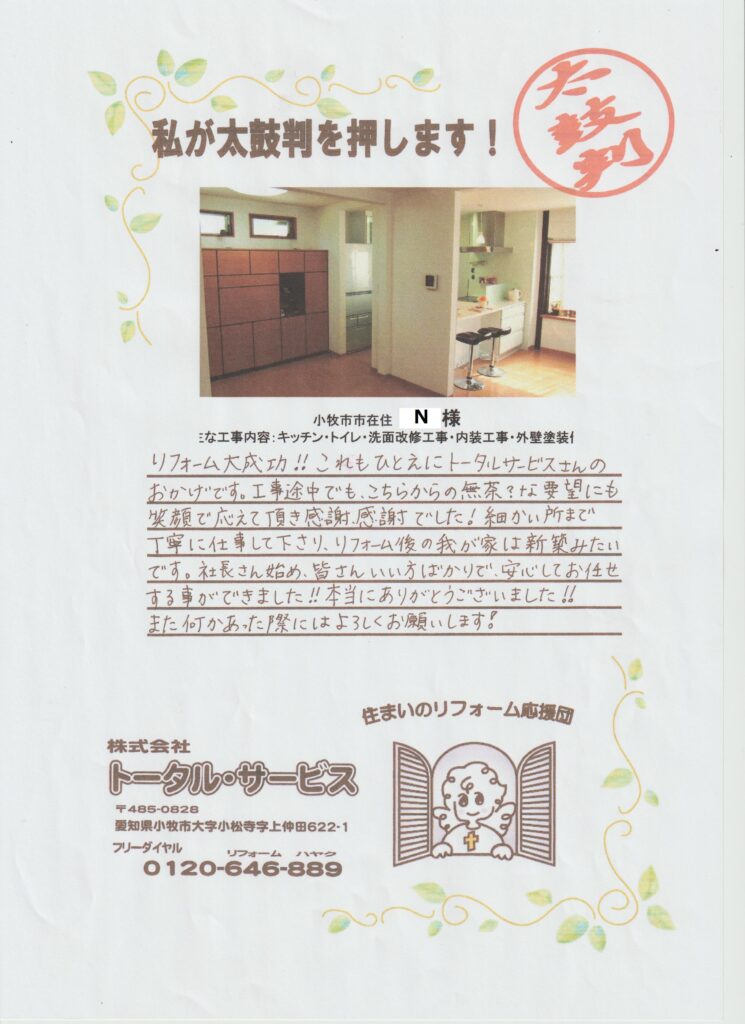 太鼓判
私が太鼓判を押します！
小牧市市在住 N 様
主な工事内容：キッチン・トイレ・洗面改修工事・内装工事・外壁塗装
リフォーム大成功!! これもひとえにトータルサービスさんの
おかげです。工事途中でも、こちらからの無茶？な要望にも
笑顔で応えて頂き感謝、感謝でした！細かい所まで
丁寧に仕事して下さり、リフォーム後の我が家は新築みたい
です。社長さん始め、皆さんいい方ばかりで、安心してお任せ
する事ができました!!本当にありがとうございました!!
また何かあった際にはよろしくお願いします！
住まいのリフォーム応援団
株式会社
トータル・サービス
〒485-0828
愛知県小牧市大字小松寺字上仲田622-1
フリーダイヤル リフォーム ハヤク
0120-646-889